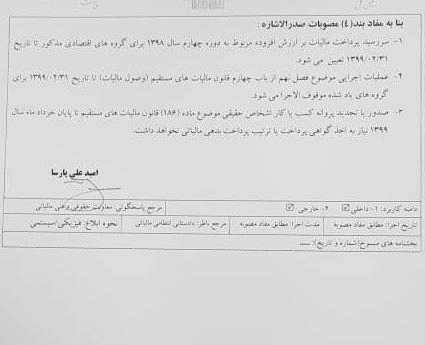 بنا به مفاد بند(٤) مصوبات صدرالاشاره:
۱- سررسید پرداخت مالیات بر ارزش افزوده مربوط به دوره چهارم سال ۱۳۹۸ برای گروه های اقتصادی مذکور تا تاریخ
۱۳۹۹/۰۲/۳۱ تعیین می شود.
۲- عملیات اجرایی موضوع فصل نهم از باب چهارم قانون مالیات های مستقیم (وصول مالیات) تا تاریخ ۱۳۹۹/۰۲/۳۱ برای
گروه های یاد شده موقوف الاجرا می شود.
۳- صدور یا تجدید پروانه کسب یا کار اشخاص حقیقی موضوع ماده (۱۸۶) قانون مالیات های مستقیم تا پایان خرداد ماه سال
۱۳۹۹ نیاز به اخذ گواهی پرداخت یا ترتیب پرداخت بدهی مالیاتی نخواهد داشت.
امید علی پارسا
دامنه کاربرد: ۱- داخلی ☑ ۲- خارجی ☑ مرجع پاسخگوئی: معاونت حقوقی و فنی مالیاتی
تاریخ اجرا: مطابق مفاد مصوبه مدت اجرا: مطابق مفاد مصوبه مرجع ناظر: دادستانی انتظامی مالیاتی نحوه ابلاغ: فیزیکی/سیستمی
بخشنامه های منسوخ(شماره و تاریخ):